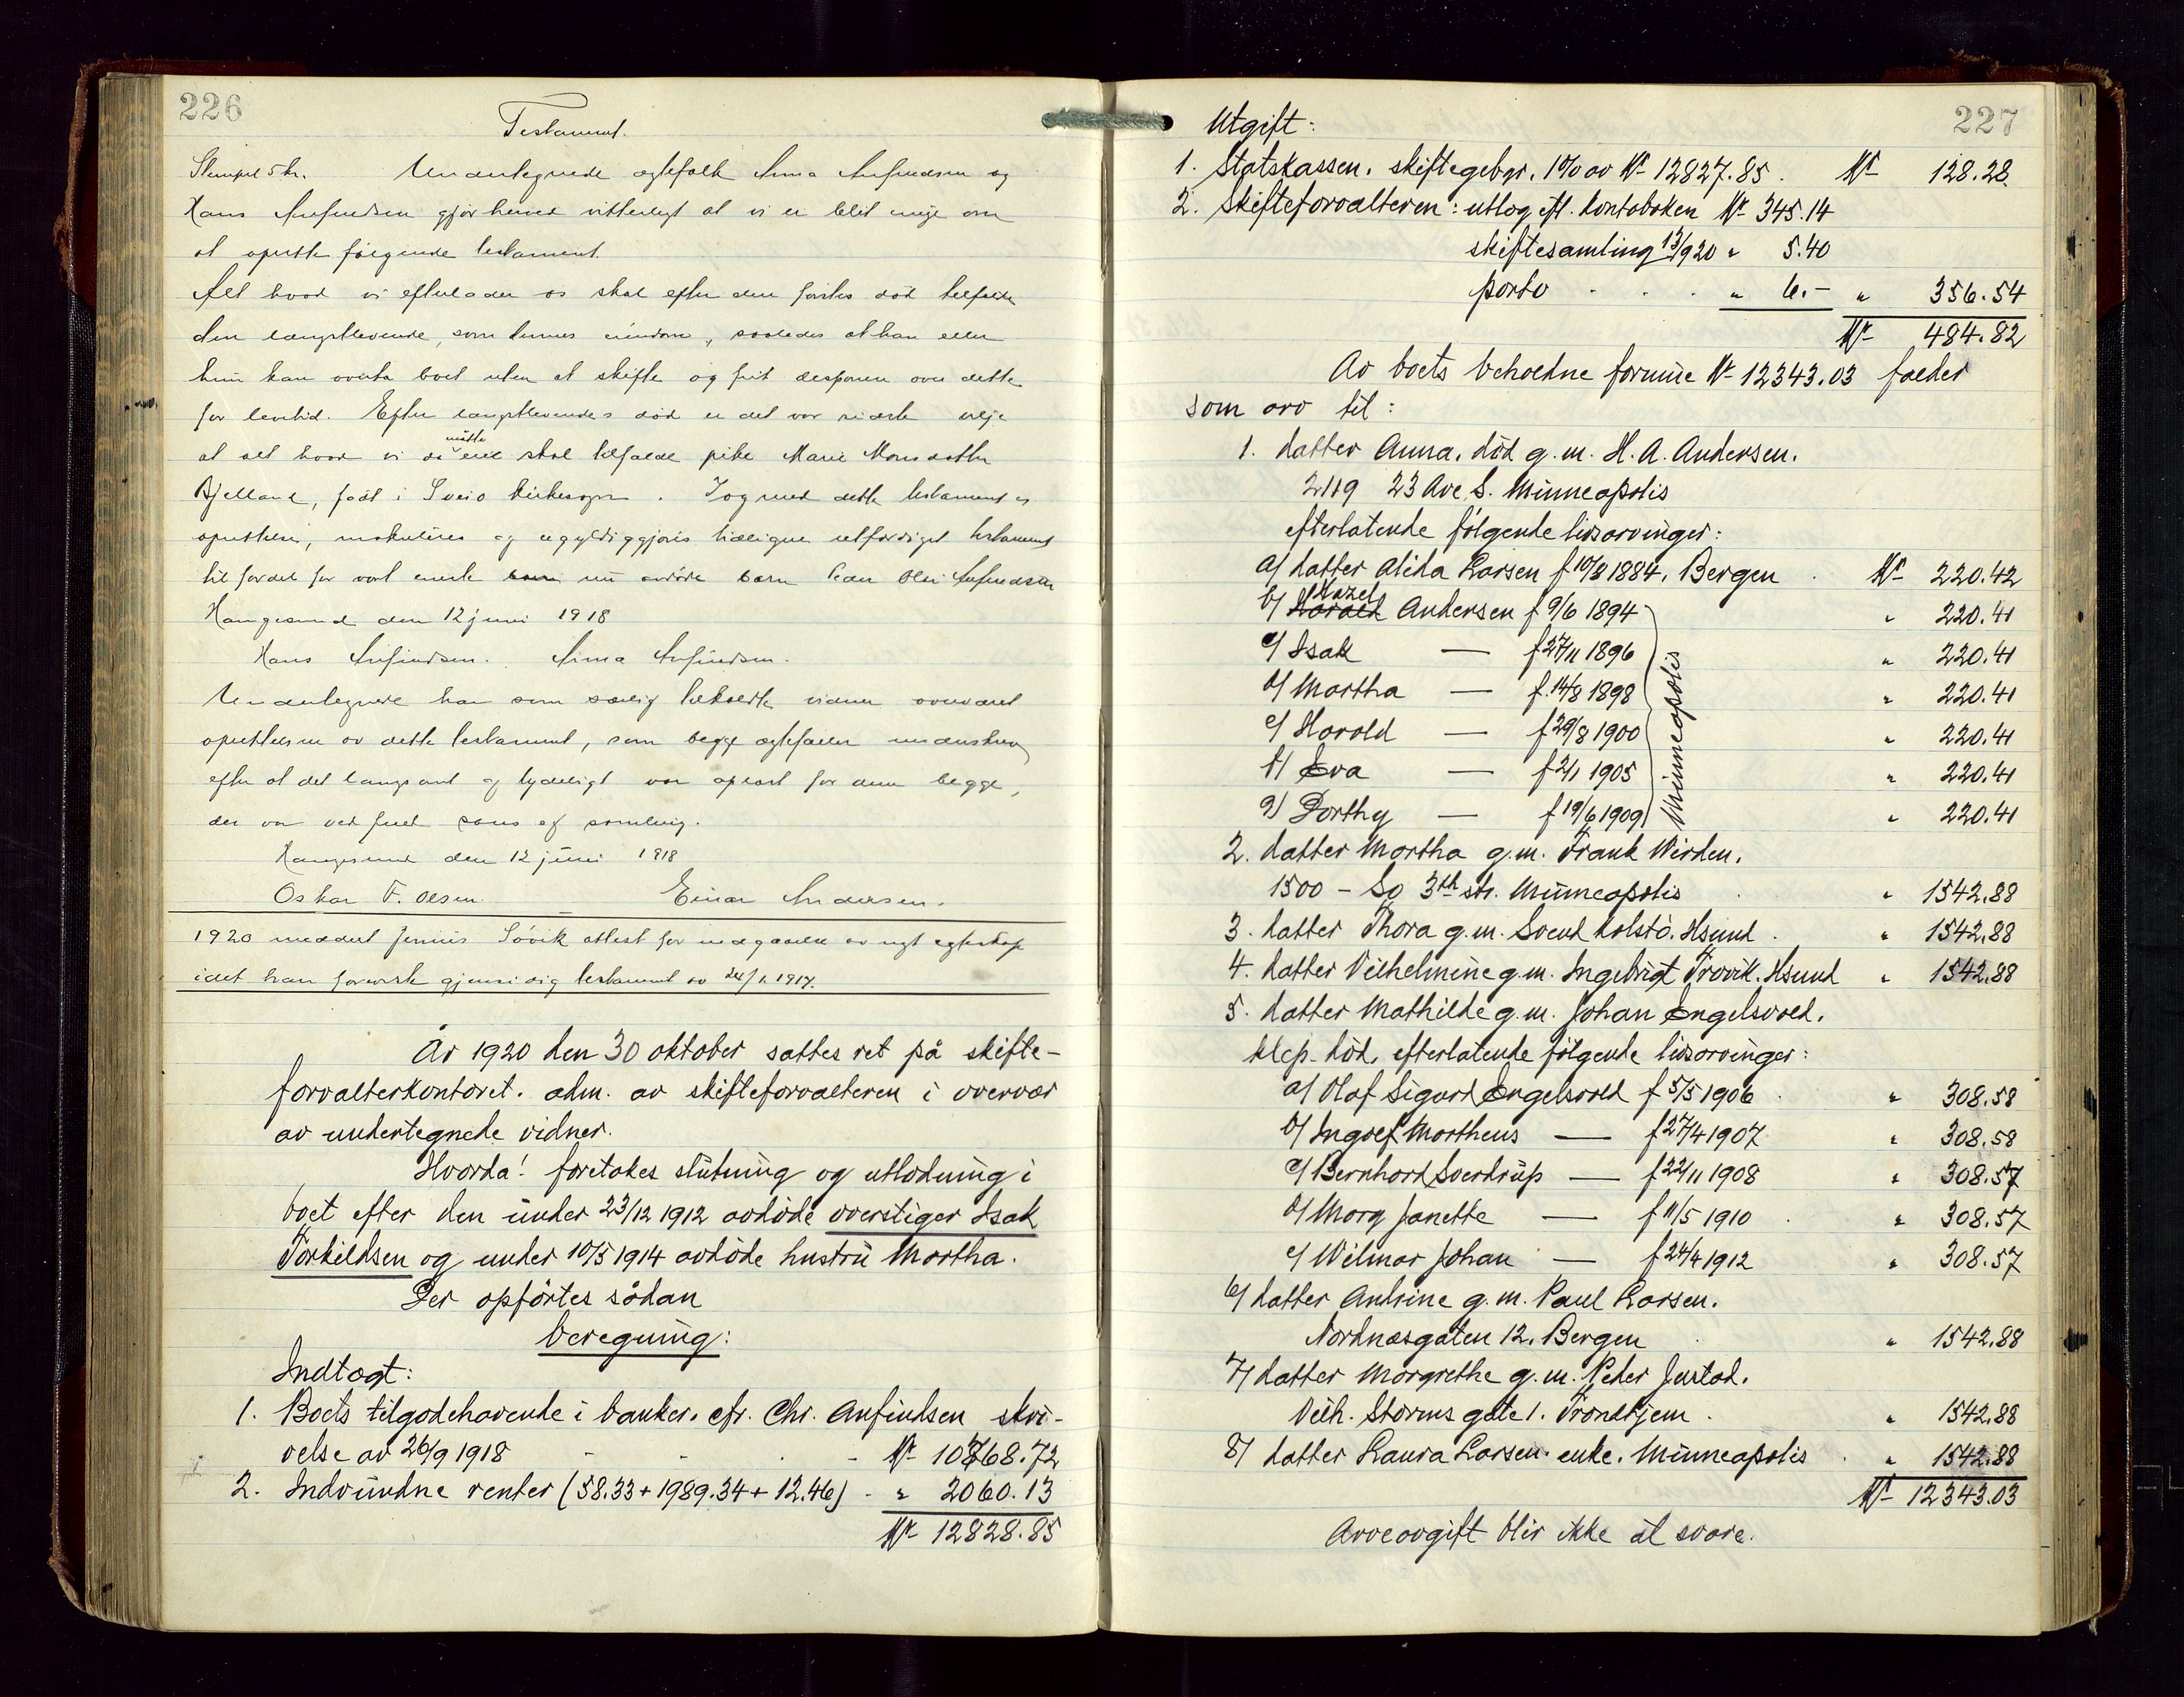 226
Testament.
Stempel 5 kr. Undertegnede egtefolk Anna Anfindsen og
Hans Anfindsen gjør herved vitterligt at vi er blit enige om
at oprette følgende testament.
Alt hvad vi efterlader os skal efter den førstes død tilfalde
den længstlevende, som dennes eiendom, saaledes at han eller
hun kan overta boet uten at skifte og frit disponere over dette
for levetid. Efter længstlevendes død er det vor sidste vilje
at alt hvad vi da måtte eie skal tilfalde pike Marie Monsdatter
Bjelland, født i Sveio kirkesogn. Og med dette testaments
oprettelse, makuleres og ugyldiggjøres tidligere utfærdiget testament
til fordel for vort eneste nu avdøde barn Peder Olai Anfindsen
Haugesund den 12 juni 1918
Hans Anfindsen. Anna Anfindsen.
Undertegnede har som særlig tilkaldte vidner overværet
oprettelsen av dette testament, som begge egtefæller underskrev
efter at det langsomt og tydeligt var oplæst for dem begge,
der var ved fuld sans og samling.
Haugesund den 12 juni 1918
Oskar F. Olsen. Einar Andersen.
1920 meddelt Søvik attest for indgaaelse av nyt egteskap
idet han foreviste gjensidig testament av 24/1 1917.
År 1920 den 30 oktober sattes ret på skifte-
forvalterkontoret. adm. av skifteforvalteren i overvær
av undertegnede vidner.
Hvorda! foretokes slutning og utlodning i
boet efter den under 23/12 1912 avdøde overstiger Isak
Torkildsen og under 10/5 1914 avdøde hustru Martha.
Der opførtes sådan
beregning:
Indtægt:
1. Boets tilgodehavende i banker. cfr. Chr. Anfindsen skri-
velse av 26/9 1918 - - . - Kr 10768.72
2. Indvundne renter (58.33 + 1989.34 + 12.46) . " 2060.13
Kr 12828.85
227
Utgift:
1. Statskassen. skiftegebyr. 1% av Kr 12827.85. Kr 128.28.
2. Skifteforvalteren: utlæg efl. kontoboken Kr 345.14
skiftesamling 13/9 20 " 5.40
porto . . . " 6.- " 356.54
Kr 484.82
Av boets beholdne formue Kr 12343.03 falder
som arv til:
1. datter Anna. død g.m. H. A. Andersen.
2119 23 Ave S. Minneapolis
efterlatende følgende livsarvinger:
a/ datter Alida Larsen f 10/8 1884. Bergen . Kr 220.42
b/ Harald Hazel Andersen f 9/6 1894 " 220.41
c/ Isak — f 27/11 1896 " 220.41
d/ Martha — f. 14/8 1898 " 220.41
e/ Harold — f 29/8 1900 " 220.41
f/ Eva — f 2/1 1905 " 220.41
g/ Dorthy — f 19/6 1909 " 220.41
Minneapolis
2. datter Martha g.m. Frank Wirden.
1500 - So 3th str. Minneapolis . " 1542.88
3. datter Thora g.m. Svend Kolstø. Hsund . " 1542.88
4. datter Vilhelmine g.m. Ingebrigt Trovik. Hsund " 1542.88
5. datter Mathilde g.m. Johan Engelsvold.
Klep. død. efterlatende følgende livsarvinger:
a/ Olaf Sigurd Engelsvold f 5/5 1906 . " 308.58
b/ Ingolf Martheus — f 27/4 1907 " 308.58
c/ Bernhard Sverdrup — f 22/11 1908 " 308.57
d/ Mary Janette — f 11/5 1910 . " 308.57
e/ Wilmar Johan — f 24/4 1912 " 308.57
6/ datter Andrine g.m. Paul Larsen.
Nordnæsgaten 12. Bergen . " 1542.88
7/ datter Margrethe g.m. Peder Justad.
Vilh. Storms gate 1. Trondhjem . " 1542.88
8/ datter Laura Larsen. enke. Minneapolis . " 1542.88
Kr 12343.03
Arveavgift blir ikke at svare.